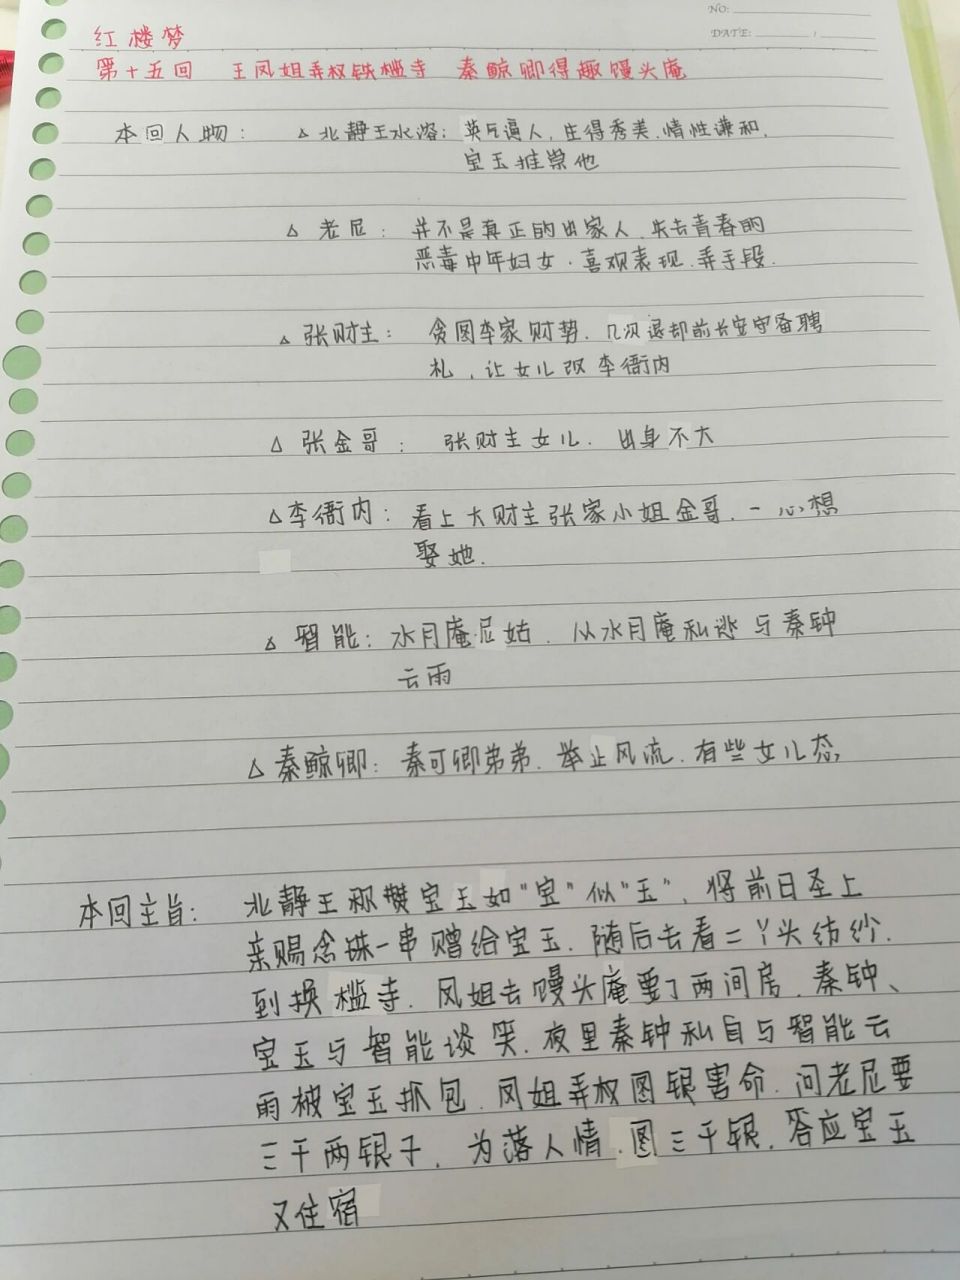 NO:
DATE:
红楼梦
第十五回 王凤姐弄权铁槛寺 秦鲸卿得趣馒头庵
本回人物: △北静王水溶: 英气逼人,生得秀美,情性谦和,
宝玉推崇他
△ 老尼: 并不是真正的出家人,失去青春的
恶毒中年妇女.喜欢表现.弄手段.
△ 张财主: 贪图李家财势.几次退却前长安守备聘
礼,让女儿改李衙内
△ 张金哥: 张财主女儿. 出身不大
△李衙内: 看上大财主张家小姐金哥.一心想
娶她.
△ 智能: 水月庵尼姑.从水月庵私逃与秦钟
云雨
△ 秦鲸卿: 秦可卿弟弟.举止风流.有些女儿态,
本回主旨: 北静王称赞宝玉如"宝"似"玉",将前日圣上
亲赐念珠一串赠给宝玉.随后去看二丫头纺纱.
到换槛寺.凤姐去馒头庵要了两间房.秦钟、
宝玉与智能谈笑.夜里秦钟私自与智能云
雨被宝玉抓包.凤姐弄权图银害命.问老尼要
三千两银子.为落人情.图三千银.答应宝玉
又住宿